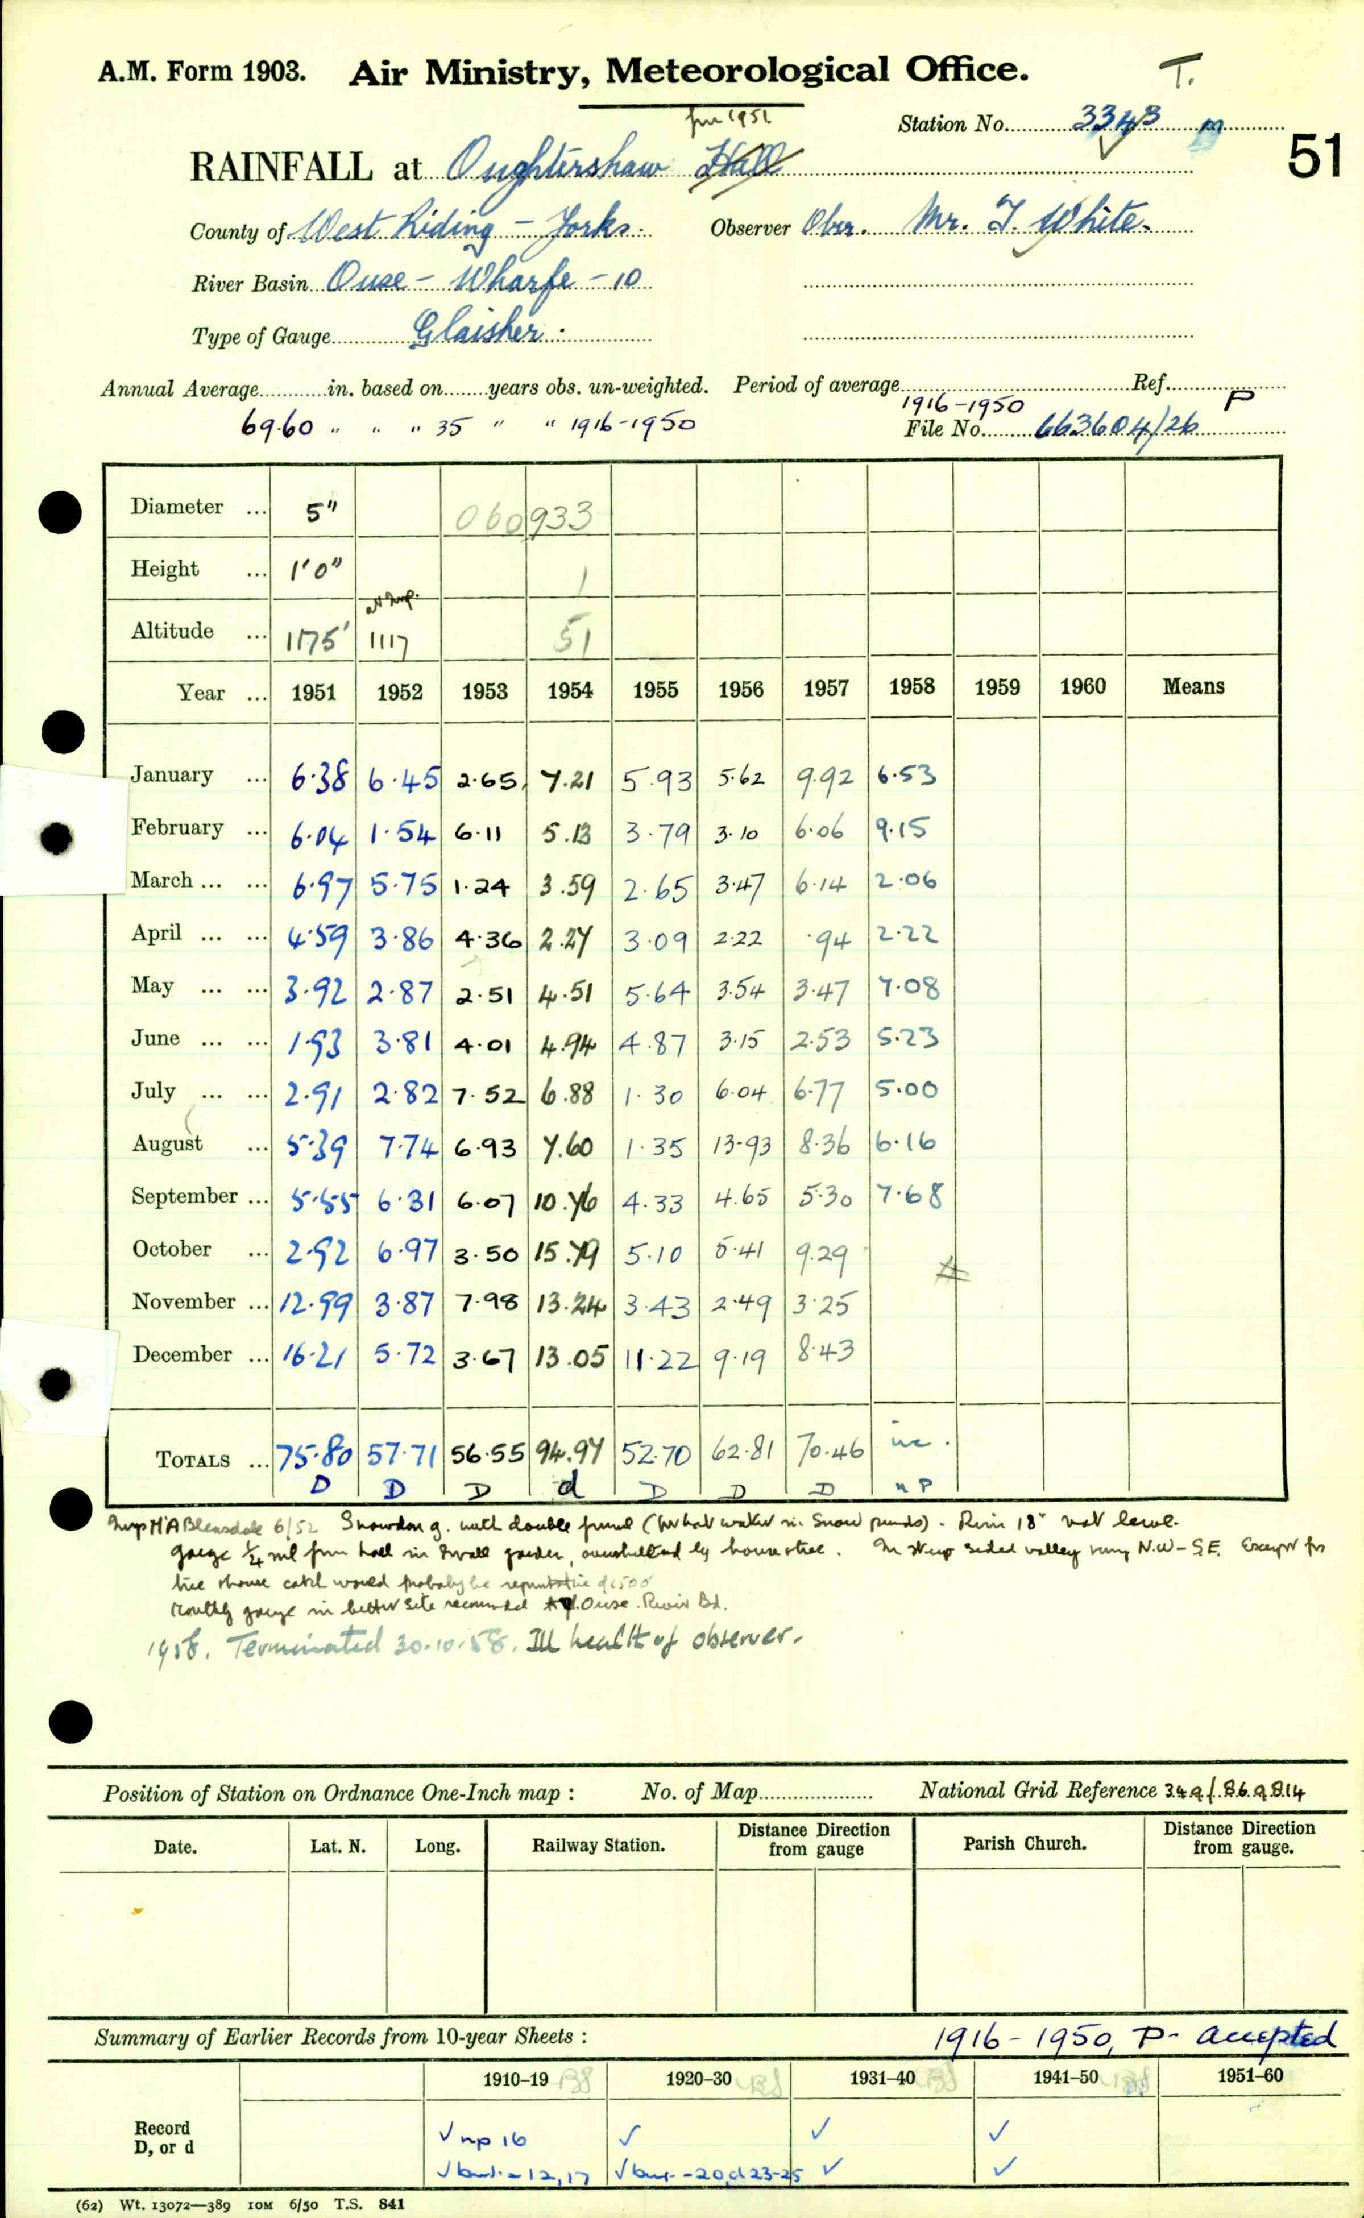 A.M. Form 1903. Air Ministry, Meteorological Office. T.
from 1951
Station No. 3343
51
RAINFALL at Oughtershaw Hall
County of West Riding - Yorks. Observer Obsr. Mr. T. White.
River Basin Ouse - Wharfe - 10
Type of Gauge Glaisher.
Annual Average in. based on years obs. un-weighted. Period of average Ref.
69.60 " " " 35 " " 1916-1950 1916-1950 P
File No. 663604/26
Diameter ... 5" 060933
Height ... 1'0" 1
Altitude ... 1175' 1117 51
Year ... 1951 1952 1953 1954 1955 1956 1957 1958 1959 1960 Means
January ... 6.38 6.45 2.65 7.21 5.93 5.62 9.92 6.53
February ... 6.04 1.54 6.11 5.13 3.79 3.10 6.06 9.15
March ... ... 6.97 5.75 1.24 3.59 2.65 3.47 6.14 2.06
April ... ... 4.59 3.86 4.36 2.27 3.09 2.22 .94 2.22
May ... ... 3.92 2.87 2.51 4.51 5.64 3.54 3.47 7.08
June ... ... 1.93 3.81 4.01 4.94 4.87 3.15 2.53 5.23
July ... ... 2.91 2.82 7.52 6.88 1.30 6.04 6.77 5.00
August ... 5.39 7.74 6.93 7.60 1.35 13.93 8.36 6.16
September ... 5.55 6.31 6.07 10.76 4.33 4.65 5.30 7.68
October ... 2.92 6.97 3.50 15.79 5.10 5.41 9.29
November ... 12.99 3.87 7.98 13.24 3.43 2.49 3.25
December ... 16.21 5.72 3.67 13.05 11.22 9.19 8.43
TOTALS ... 75.80 57.71 56.55 94.97 52.70 62.81 70.46 inc.
D D D d D D D n P
Insp Bleasdale 6/52 Snowdon g. with double funnel (hot water in snow periods). Rim 18" not level.
gauge 1/4 mil from hall in small garden, overshelterd by house & tree. In steep sided valley N.W-S.E. Except for
tree & house catch would probably be
Monthly gauge in better site Ouse River Bd.
1958. Terminated 30.10.58. Ill health of observer.
Position of Station on Ordnance One-Inch map : No. of Map National Grid Reference 34.9/.86.9.814
Date. Lat. N. Long. Railway Station. Distance Direction from gauge Parish Church. Distance Direction from gauge.
Summary of Earlier Records from 10-year Sheets : 1916-1950, P- accepted
1910-19 1920-30 1931-40 1941-50 1951-60
Record ✓ np 16 ✓ ✓ ✓
D, or d ✓ but - 12, 17 ✓ but - 20, d 23-25 ✓ ✓
(62) Wt. 13072—389 10M 6/50 T.S. 841